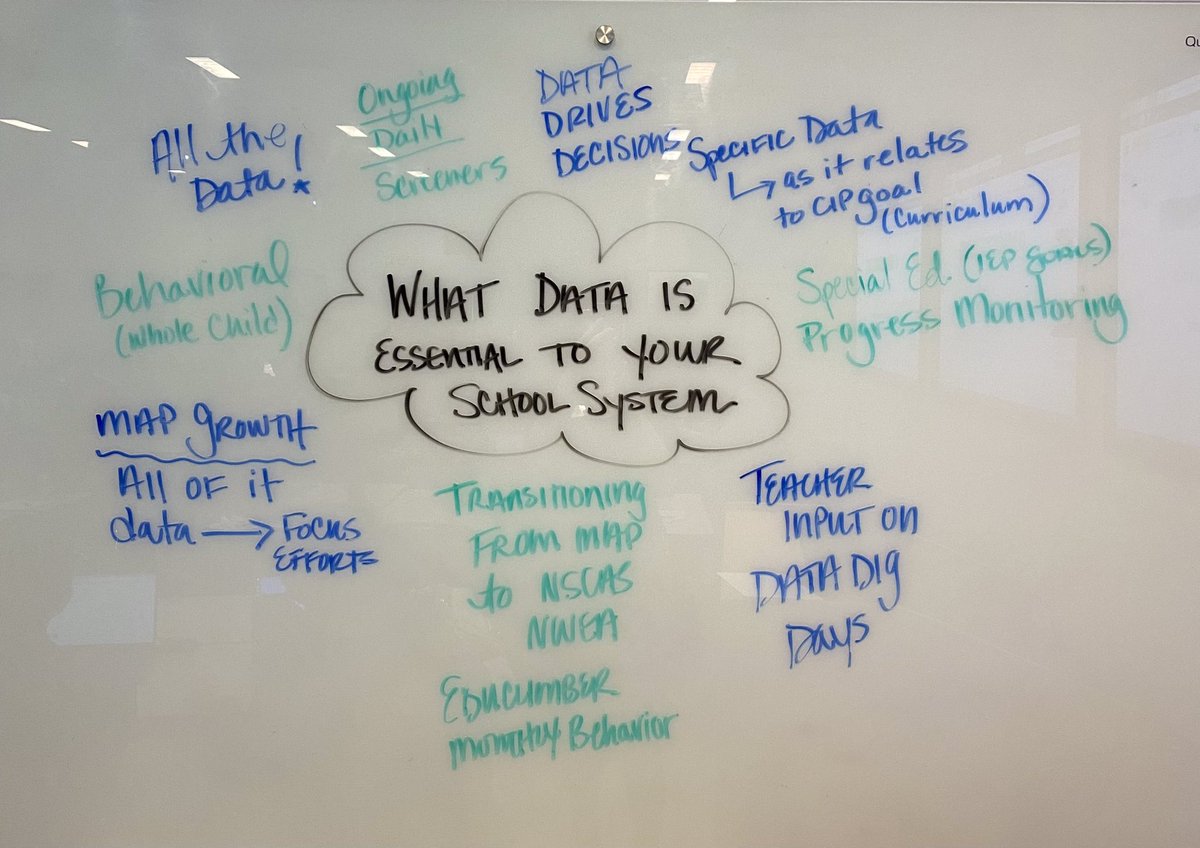 Qu
WHAT DATA IS
ESSENTIAL TO YOUR
SCHOOL SYSTEM
All the
Data!
Ongoing
Daily
Screeners
DATA
DRIVES
DECISIONS
SPECIFIC Data
↳ as it relates
to CIP goal
(Curriculum)
Special Ed. (IEP GOALS)
Progress Monitoring
Behavioral
(whole child)
MAP GROWTH
All OF it
data → FOCUS
EFFORTS
TRANSITIONING
FROM MAP
to NSCAS
NWEA
EDUCLIMBER
MONTHLY Behavior
TEACHER
INPUT ON
DATA DIG
DAYS